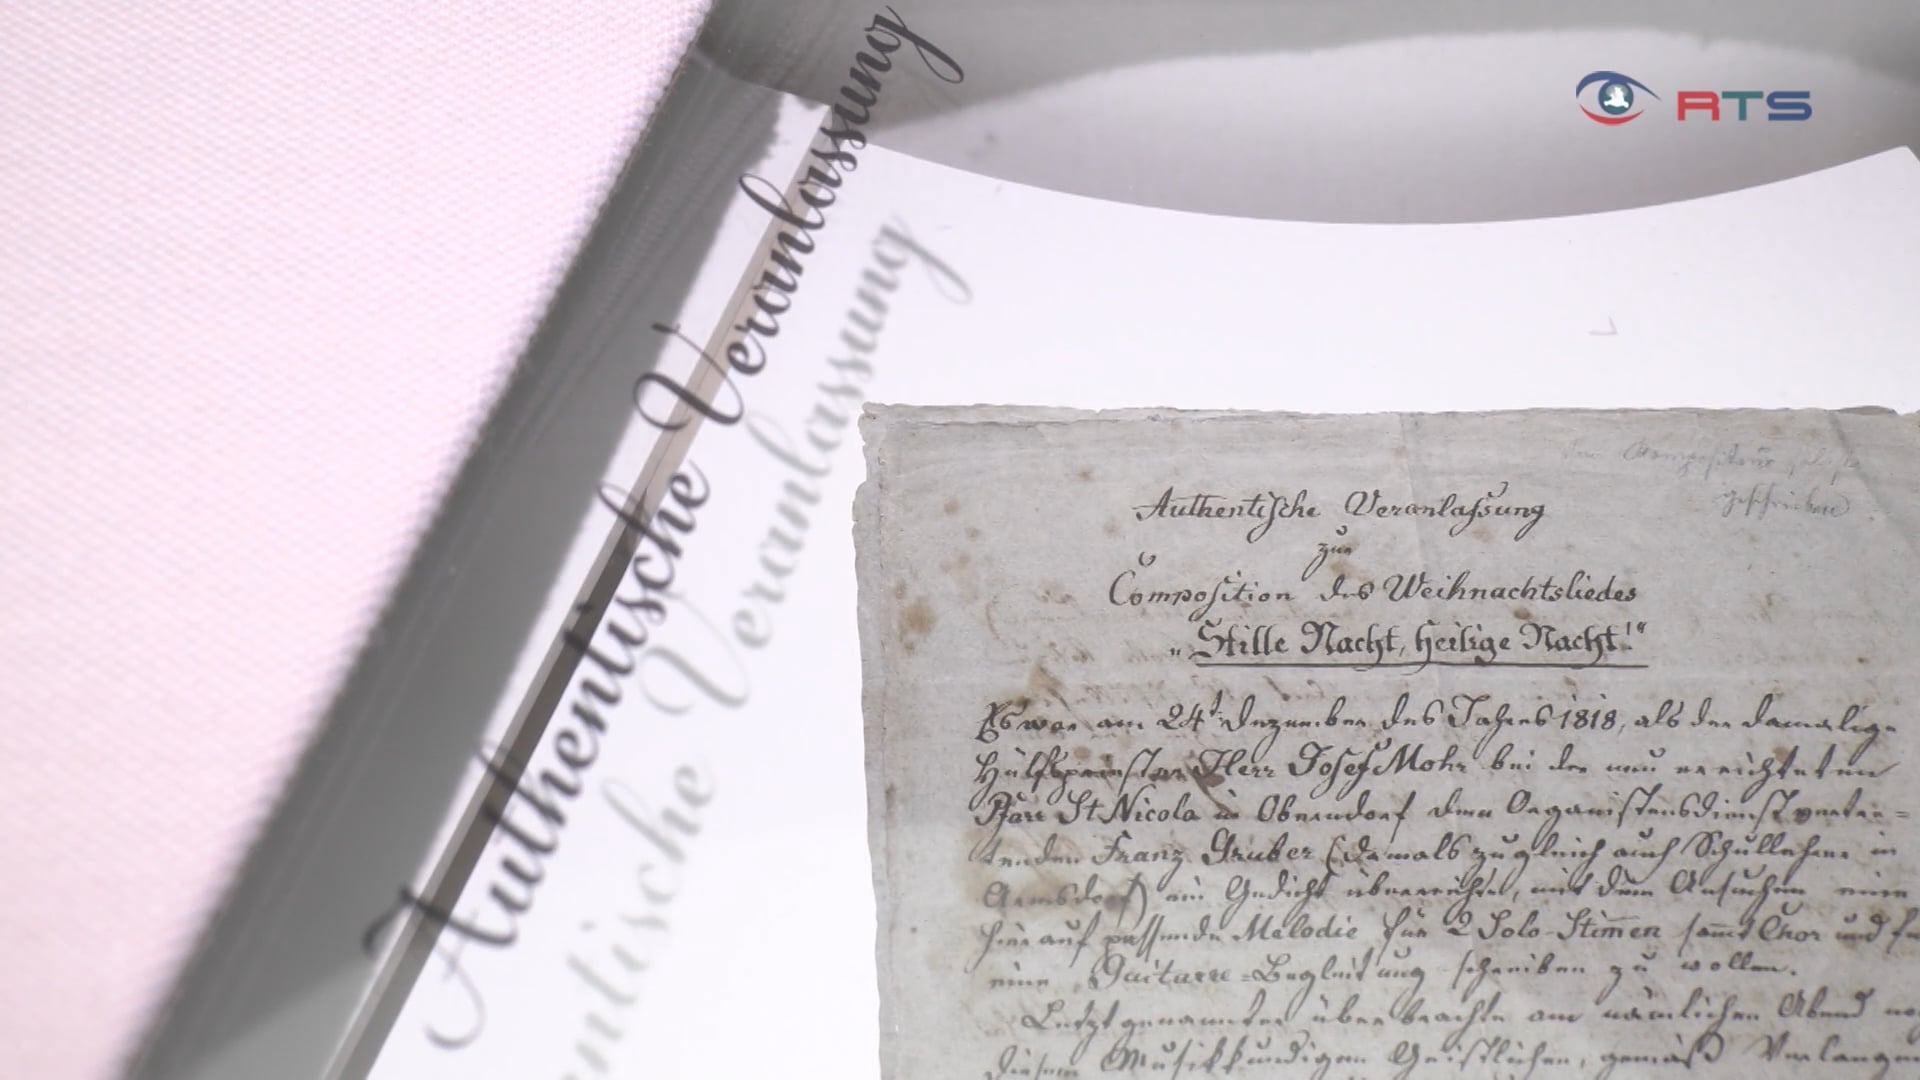 RTS
Authentische Veranlassung
Authentische Veranlaſsung
zur
Compoſition des Weihnachtsliedes
„Stille Nacht, heilige Nacht!“
Es war am 24t Dezember des Jahres 1818, als der damalige
Hülfspriester Herr Joſef Mohr bei der neu errichteten
Pfarr St Nicola in Oberndorf dem Organistensdienst vertre=
tenden Franz Gruber (damals zugleich auch Schullehrer in
Arnsdorf) ein Gedicht überreichte, mit dem Ansuchen eine
hierauf passende Melodie für 2 Solo-Stimmen sammt Chor und
eine Guitarre=Begleitung schreiben zu wollen.
Letztgenannter überbrachte am nämlichen Abend
diesem Musikkundigen Geistlichen, gemäß Verlangen